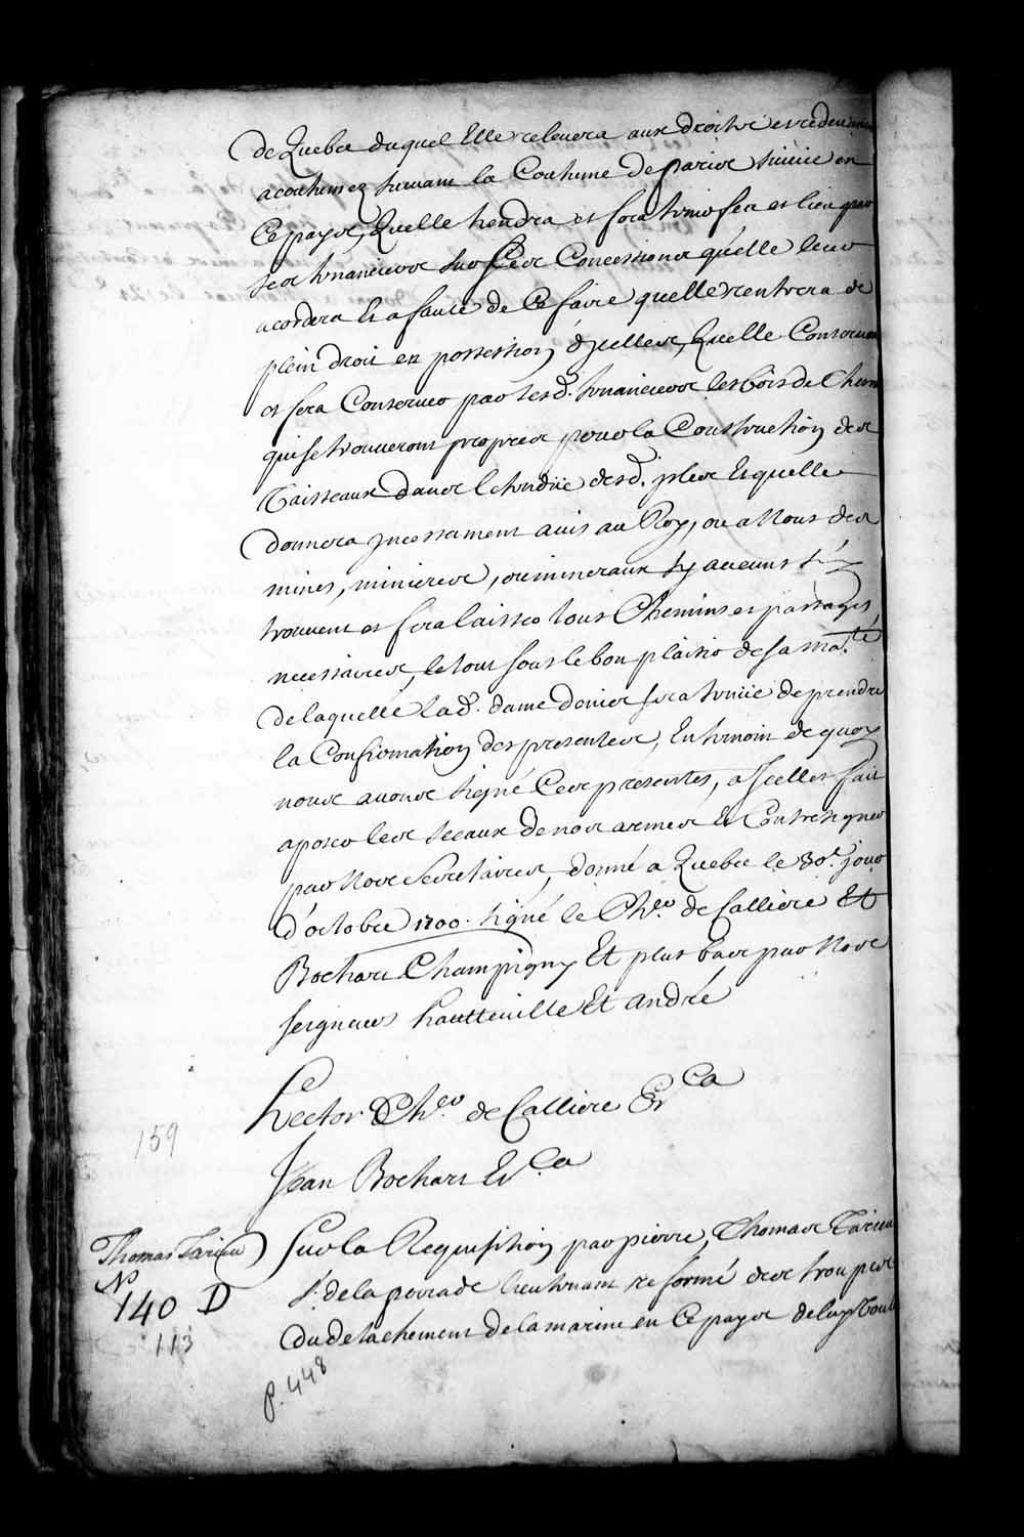 de Quebec duquel Elle relevera aux droits et redevances
acoutumez suivant la Coutume de paris suivie en
Ce pays, Quelle tiendra et fera tenir feu et lieu par
ses tenanciers sur les Concessions qu'elle leur
acordera Et a faute de Ce faire quelle rentrera de
plein droit en possession d'ycelles, Quelle Conservera
et fera Conserver par lesd. tenanciers les bois de Chesne
qui se trouveront propres pour la Construction des
Vaisseaux dans letendüe desd. jsles Et quelle
donnera jncessament avis au Roy, ou a Nous des
mines, minieres, ou mineraux sy aucuns s'y
trouvent et fera laisser tous Chemins et passages
necessaires, le tout sous le bon plaisir de sa ma.té
de laquelle lad. dame denier sera tenüe de prendre
la Confirmation des presentes, En temoin de quoy
nous avons signé Ces presentes, a jcelles fait
aposer les sceaux de nos armes Et Contresigner
par Nos secretaires, donné a Quebec le 30e. jour
d'octobre 1700. signé le Ch.er de Calliere Et
Bochart Champigny Et plus bas par Nos
seigneurs hautteville Et andré
hector Ch.er de Calliere Et ca
Jean Bochart Et ca
159
Thomas Tarieu
No
140 D
113
Sur la Requisition par pierre, Thomas Tarieu
Sr. de la perade lieutenant reformé des troupes
du detachement de la marine en Ce pays de luy Vouloir
P. 448